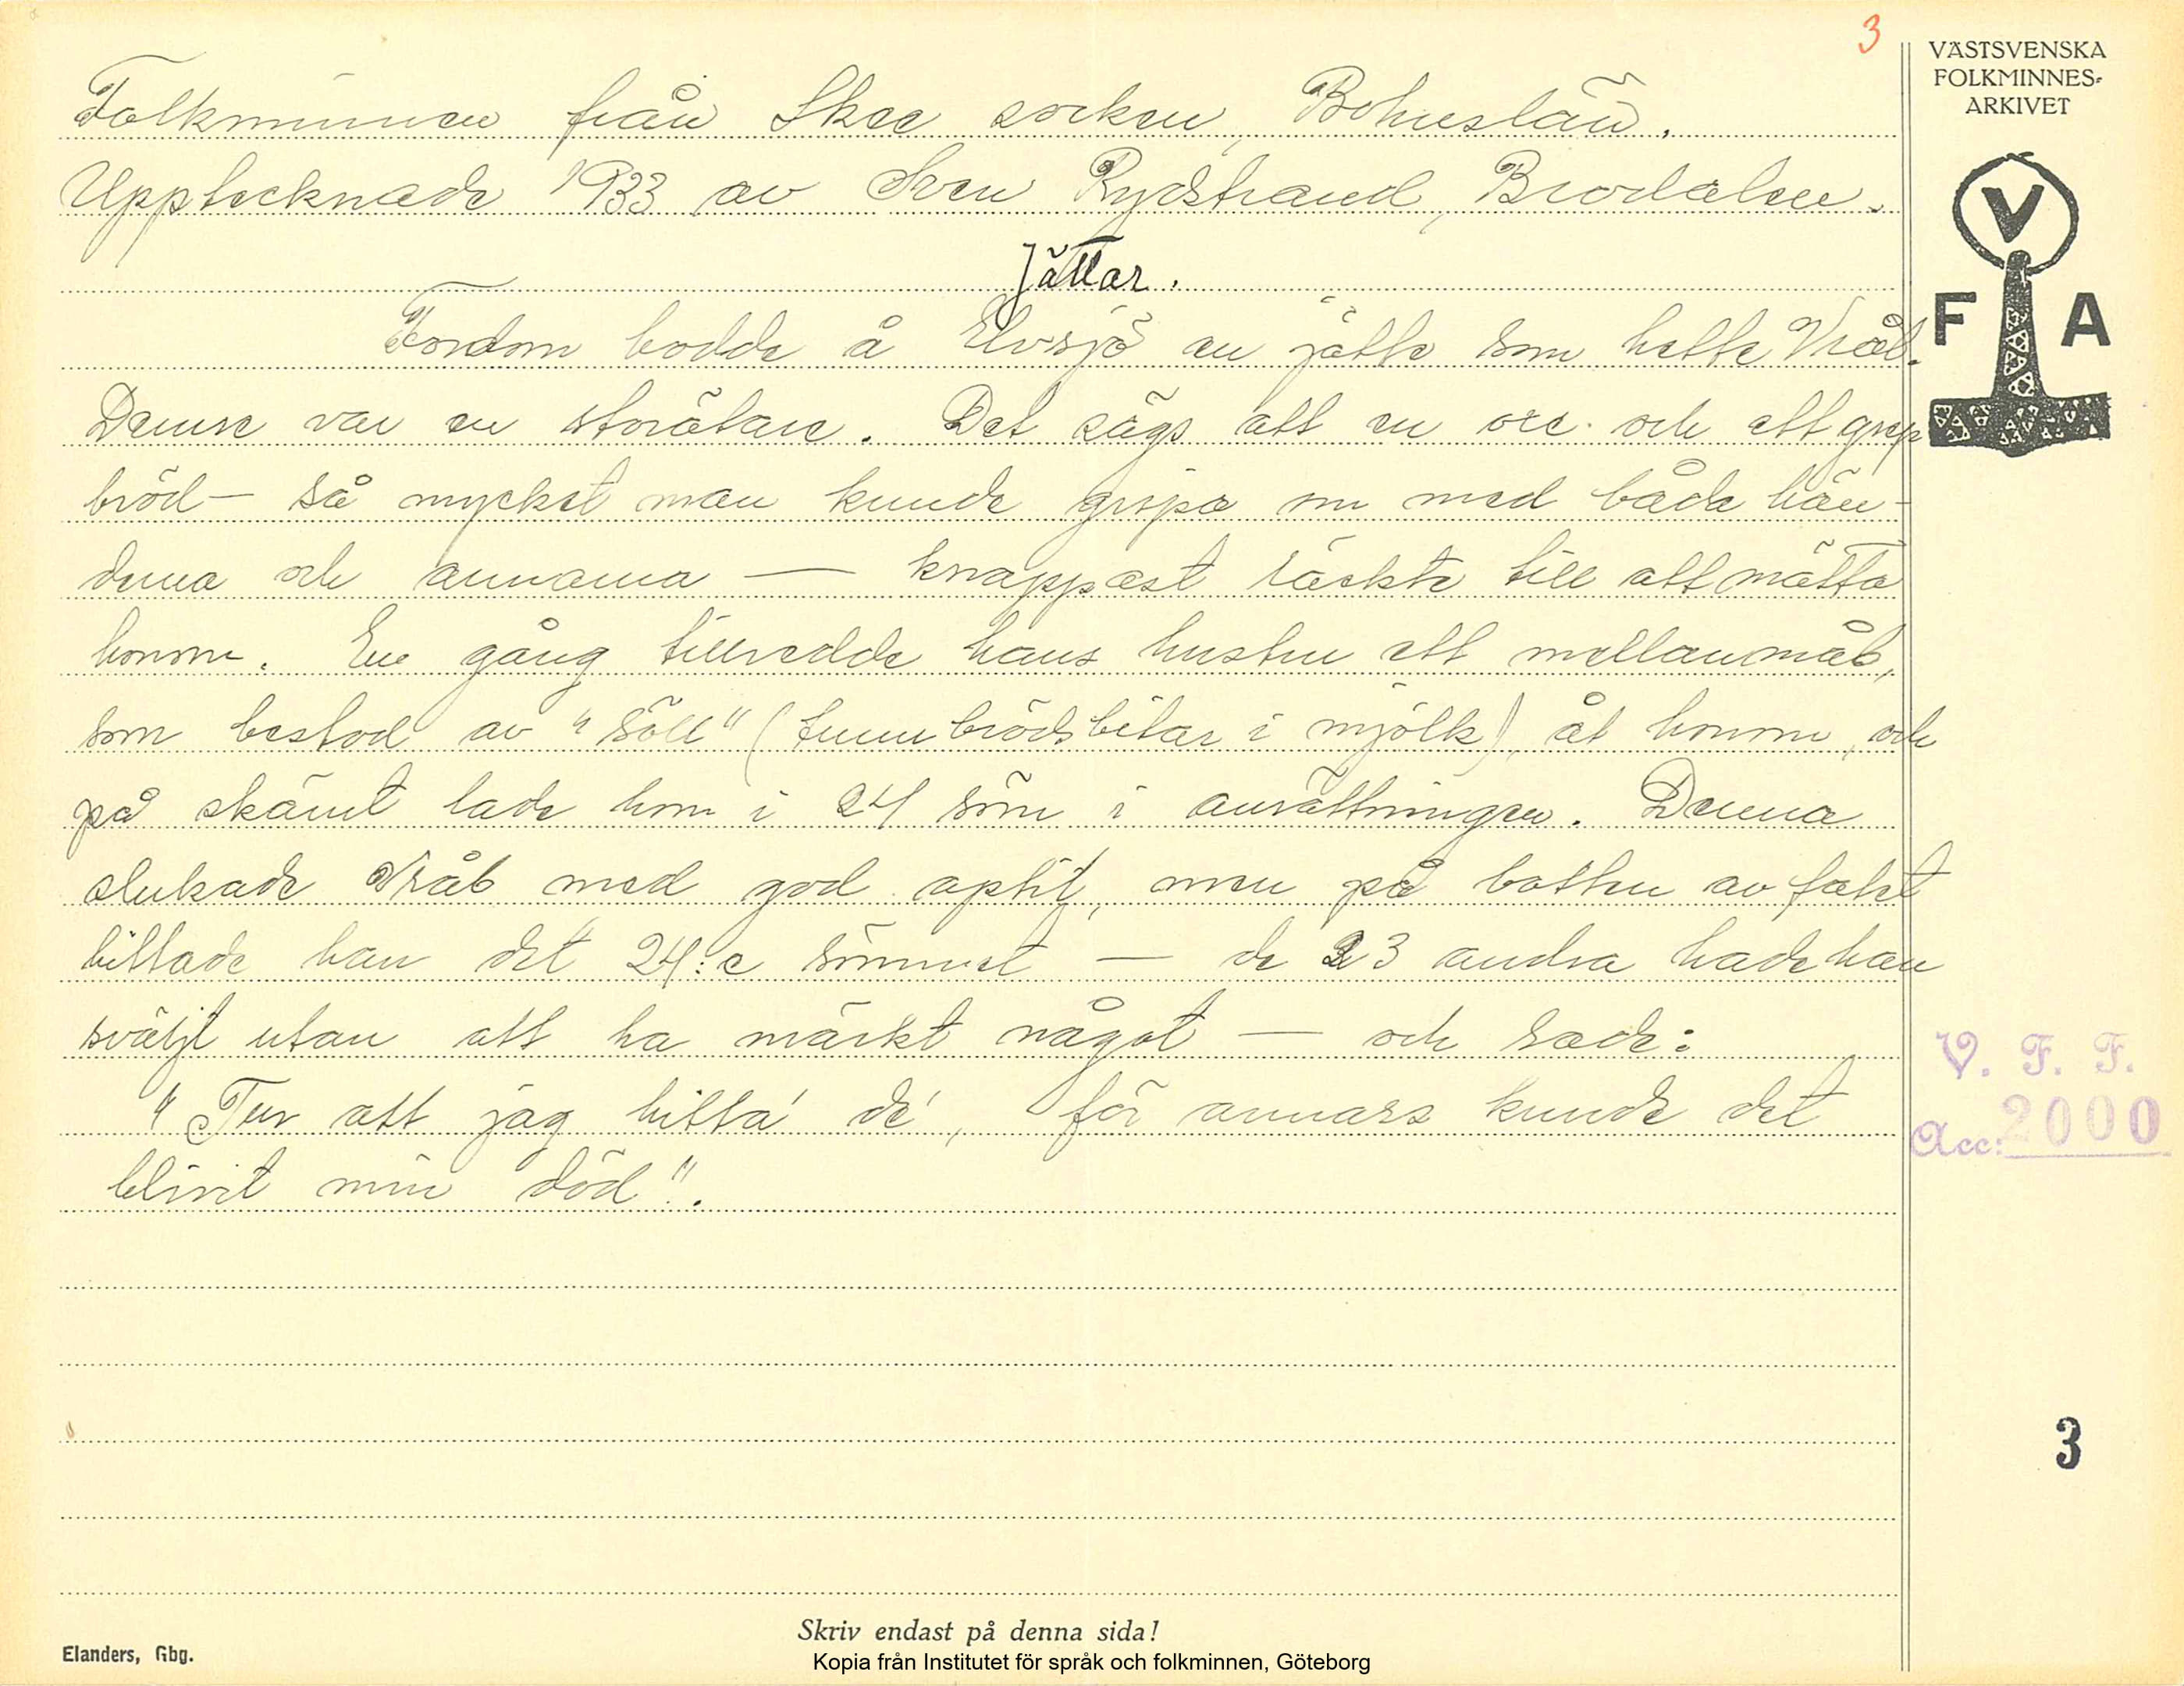 3
VÄSTSVENSKA
FOLKMINNES-
ARKIVET
V
F A
Folkminnen från Skee socken, Bohuslän.
Upptecknade 1933 av Sven Rydstrand, Brodalen.
Jättar.
Fordom bodde å Elvsjö en jätte som hette Vråb.
Denne var en storätare. Det sägs att en oxe och ett grep
bröd – så mycket man kunde gripa om med båda hän-
derna och armarna — knappast räckte till att mätta
honom. En gång tillredde hans hustru ett mellanmål,
som bestod av "söll" (tunnbrödsbitar i mjölk), åt honom, och
på skämt lade hon i 24 söm i anrättningen. Denna
slukade Vråb med god aptit, men på botten av fatet
hittade han det 24:e sömmet — de 23 andra hade han
sväljt utan att ha märkt något — och sade:
"Tur att jag hitta' de', för annars kunde det
blivit min död".
V. F. F.
Acc: 2000
3
Skriv endast på denna sida!
Elanders, Gbg.
Kopia från Institutet för språk och folkminnen, Göteborg